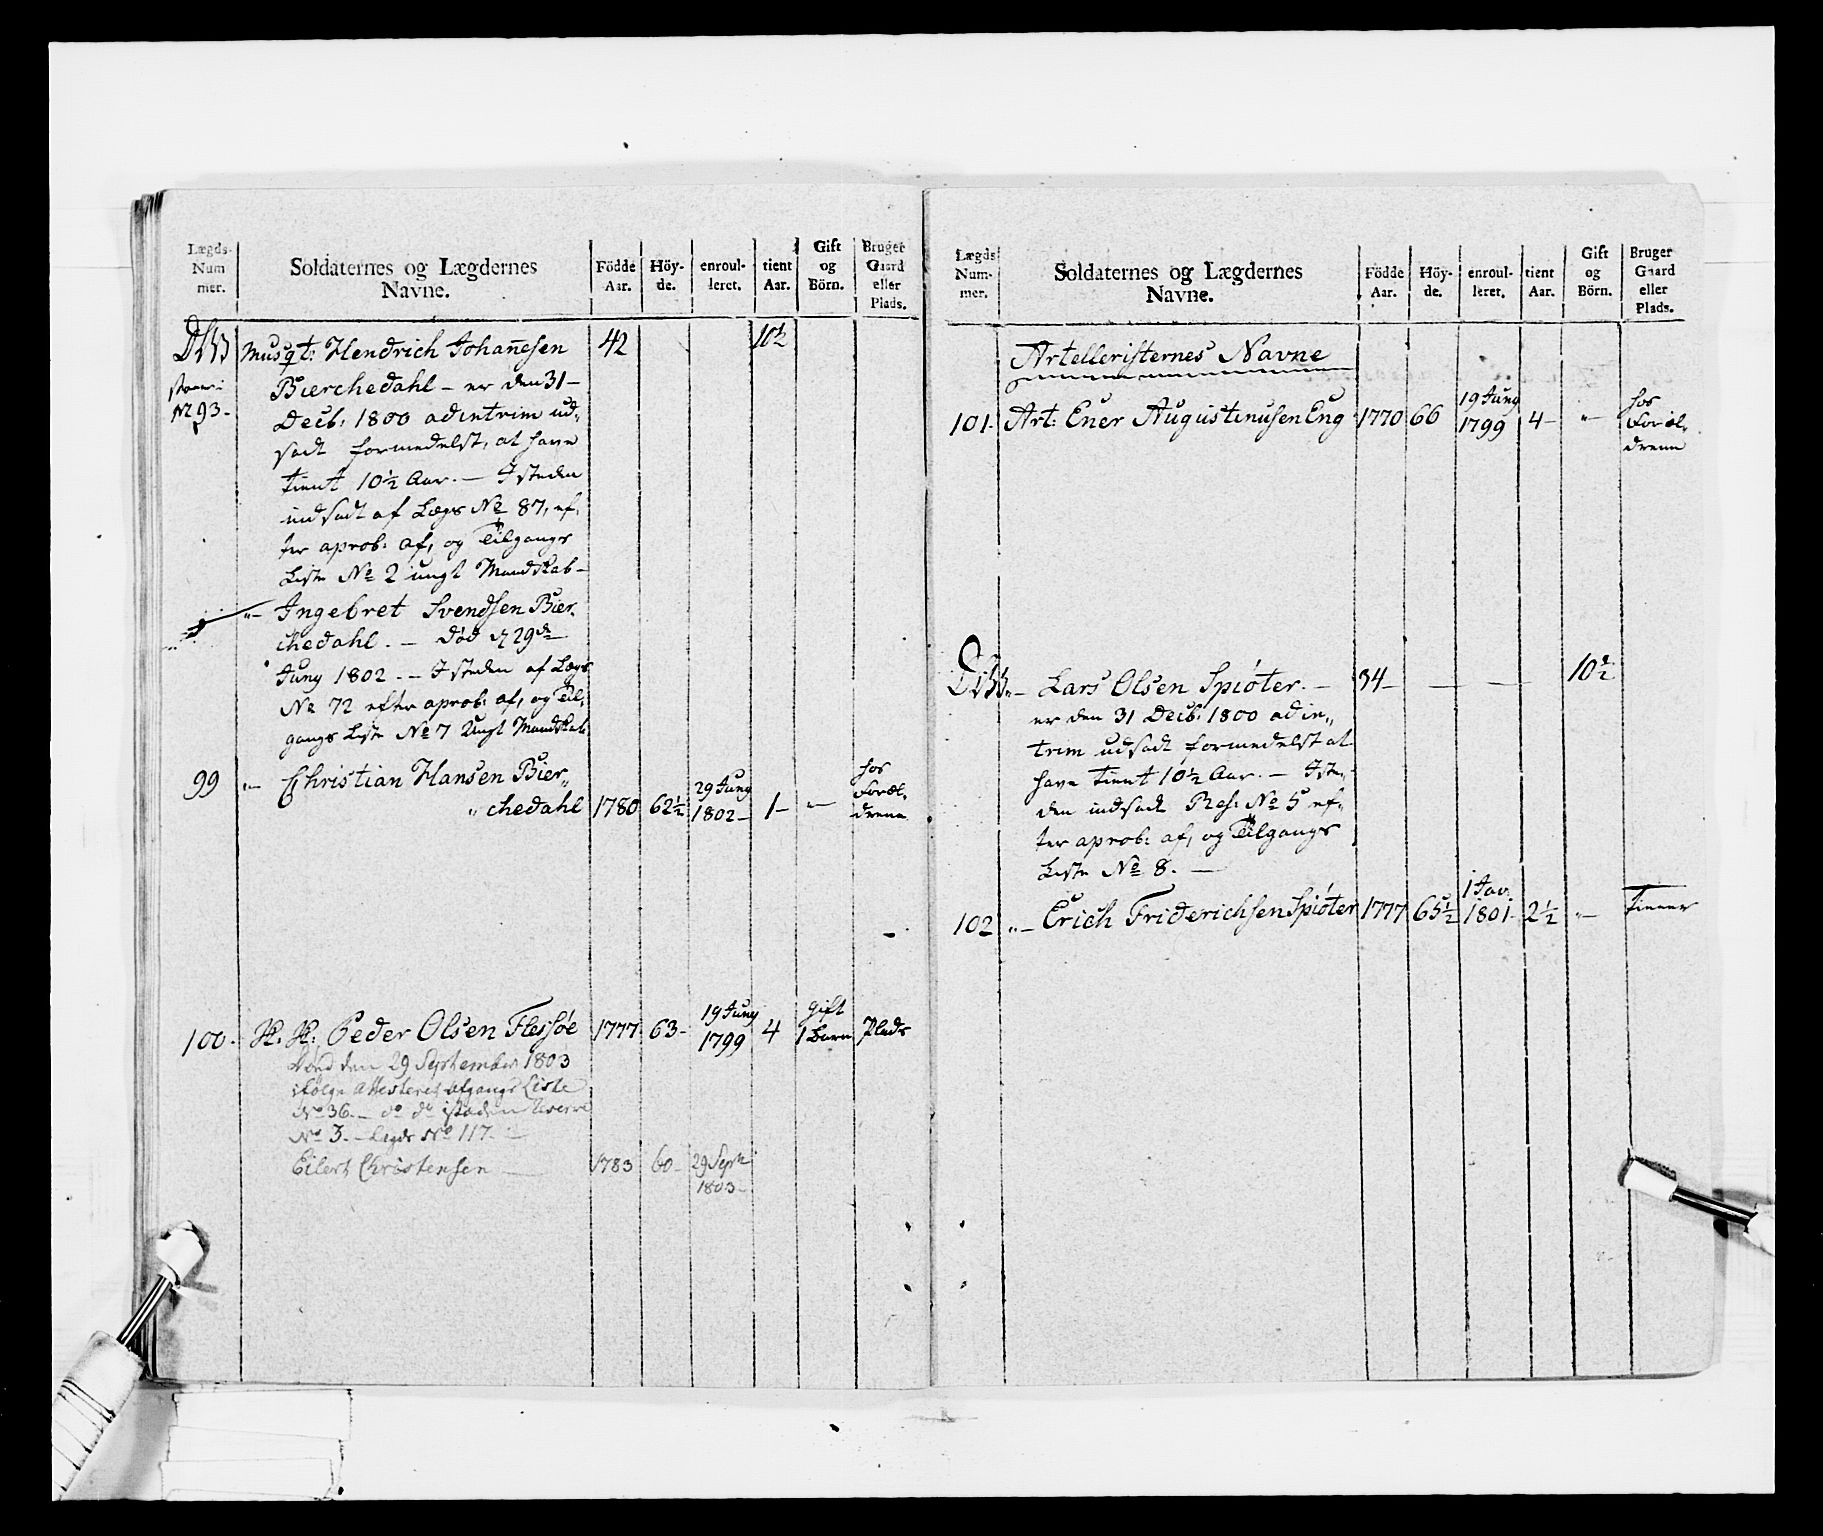 Lægds-
Num
mer.
Soldaternes og Lægdernes
Navne.
Födde
Aar.
Höy-
de.
enroul-
leret.
tient
Aar.
Gift
og
Börn.
Bruger
Gaard
eller
Plads.
Musqt: Hendrich Johan̄esen 42 10½
Bierchedahl – er den 31 –
No 93 – Decb: 1800 ad intrim ud-
sadt formedelst, at have
tient 10½ Aar. – I steden
indsadt af Lægs No 87, ef-
ter aprob: af, og Tilgangs
Liste No 2 ungt Mandskab –
"– Ingebret Svendsen Bier-
chedahl. – død d 29de
Juny 1802. – I steden af Lægs
No 72 efter aprob: af, og Til-
gangs Liste No 7 Ungt Mandskab
99 "– Christian Hansen Bier-
"chedahl 1780 62½ 29 Juny 1802 – 1 – "– hos Foræl-
drene
100. K. K: Peder Olsen Flessöe 1777 63 – 19 Juny 1799 4 gift 1 Barn Plads
den 29 September 1803
ifölge Attesteret afgangs Liste
No 36. – do do isteden Reserve
No 3. – Lægds No 117. –
Eilert Christensen – 1783 60 – 29 Septr
1803 –
Lægds
Num-
mer.
Soldaternes og Lægdernes
Navne.
Födde
Aar.
Höy-
de.
enroul-
leret.
tient
Aar.
Gift
og
Börn.
Bruger
Gaard
eller
Plads.
Artelleristernes Navne
101. Art: Ener Augustinusen Eng 1770 66 19 Juny 1799 4 – "– hos
Foræl-
drene
"– Lars Olsen Spiöter. – 34 – – – 10½
er den 31 Decb: 1800 ad in-
trim udsadt formedelst at
have tient 10½ Aar. – I ste-
den indsadt Res: No 5 ef-
ter aprob: af, og Tilgangs
Liste No 8. –
102 "– Erich Friderichsen Spiöter 1777 65½ 1 Jav: 1801 – 2½ "– tiener